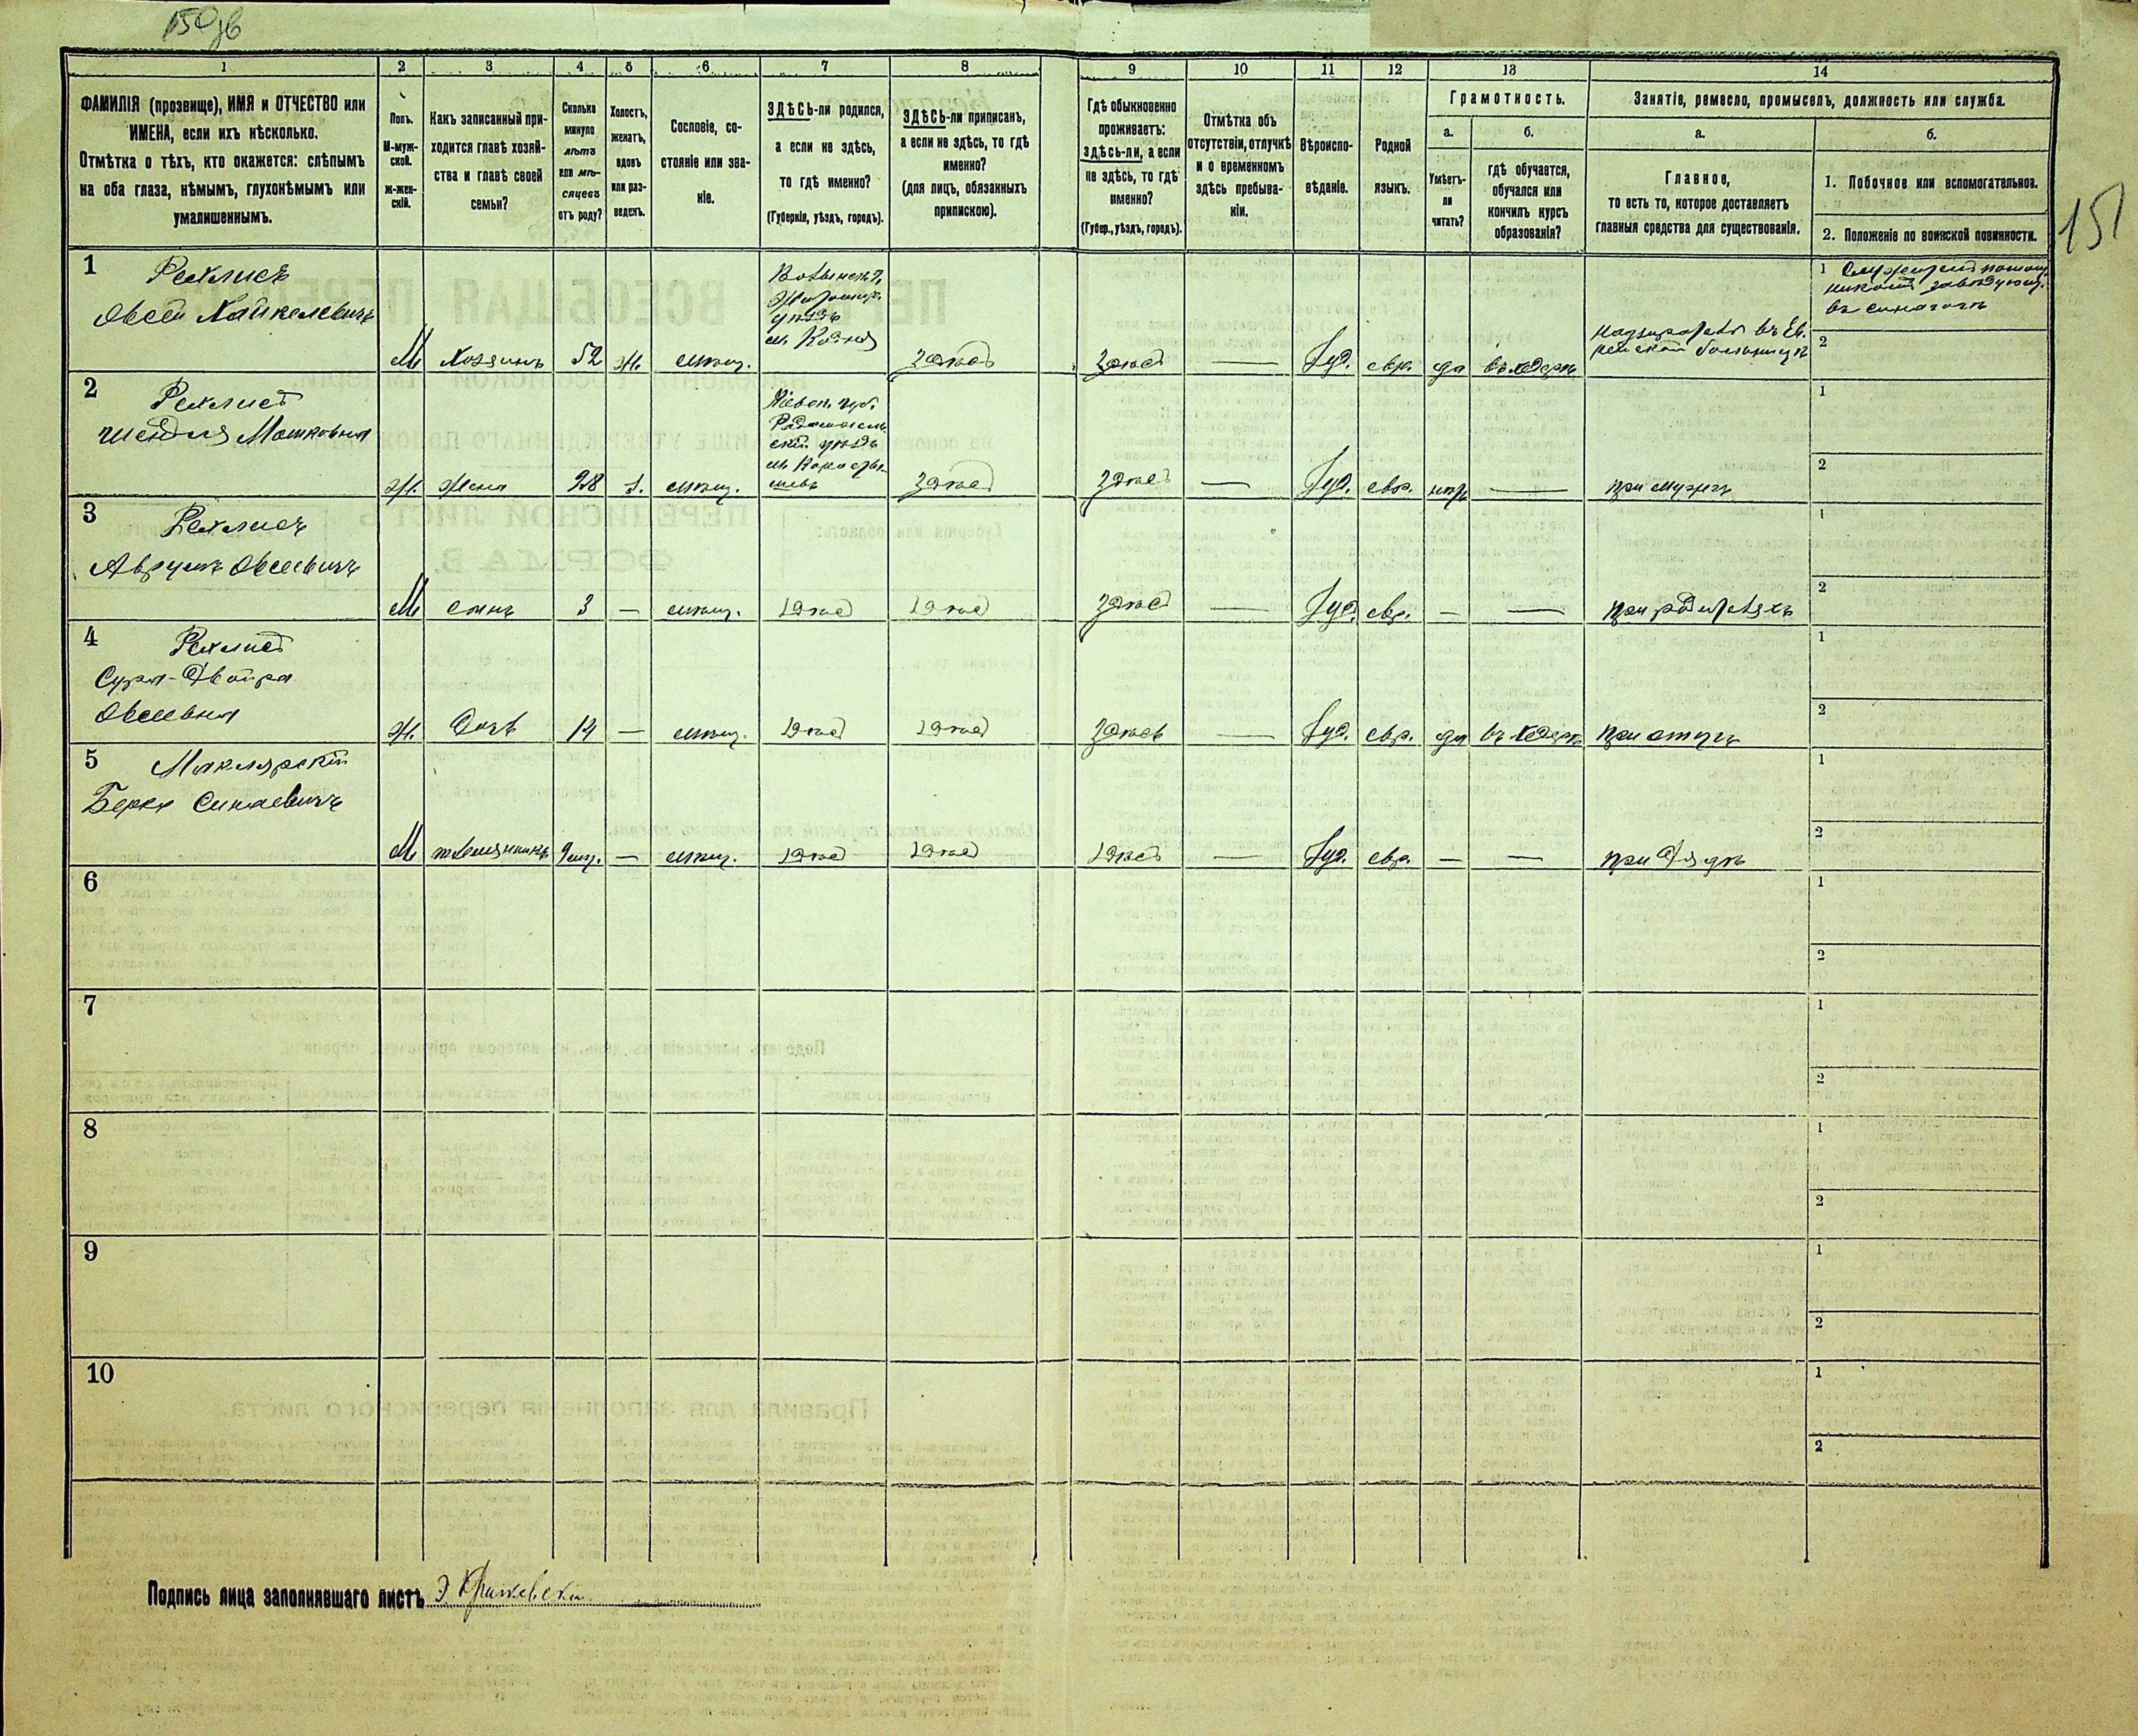 150 об
151
1 2 3 4 5 6 7 8 9 10 11 12 13 14
ФАМИЛІЯ (прозвище), ИМЯ и ОТЧЕСТВО или
ИМЕНА, если ихъ нѣсколько.
Отмѣтка о тѣхъ, кто окажется: слѣпымъ
на оба глаза, нѣмымъ, глухонѣмымъ или
умалишеннымъ.
Полъ.
М-муж-
ской.
ж-жен-
скій.
Какъ записанный при-
ходится главѣ хозяй-
ства и главѣ своей
семьи?
Сколько
минуло
лѣтъ
или мѣ-
сяцевъ
отъ роду?
Холостъ,
женатъ,
вдовъ
или раз-
веденъ.
Сословіе, со-
стояніе или зва-
ніе.
ЗДѢСЬ-ли родился,
а если не здѣсь,
то гдѣ именно?
(Губернія, уѣздъ, городъ).
ЗДѢСЬ-ли приписанъ,
а если не здѣсь, то гдѣ
именно?
(для лицъ, обязанныхъ
припискою).
Гдѣ обыкновенно
проживаетъ:
здѣсь-ли, а если
не здѣсь, то гдѣ
именно?
(Губер., уѣздъ, городъ).
Отмѣтка объ
отсутствіи, отлучкѣ
и о временномъ
здѣсь пребыва-
ніи.
Вѣроиспо-
вѣданіе.
Родной
языкъ.
Грамотность.
а.
Умѣетъ-
ли
читать?
б.
гдѣ обучается,
обучался или
кончилъ курсъ
образованія?
Занятіе, ремесло, промыселъ, должность или служба.
а.
Главное,
то есть то, которое доставляетъ
главныя средства для существованія.
б.
1. Побочное или вспомогательное.
2. Положеніе по воинской повинности.
1
Овсей Хайкелевичъ
М
Хозяинъ
52
ж.
мѣщ.
Волынск. г.
Житомир.
уѣздъ
м.
здѣсь
здѣсь
—
Іуд.
евр.
да
въ хедерѣ
Надзиратель въ Ев-
рейской больницѣ
1
завѣдующ.
въ синагогѣ
2
2
Шейдля Мошковна
Ж.
Жена
28
з.
мѣщ.
Кіевск. губ.
Радомысль-
скій уѣздъ
м. Коросты-
шевъ
здѣсь
здѣсь
—
Іуд.
евр.
нѣтъ
—
при мужѣ
1
2
3
Аврумъ Овсеевичъ
М
сынъ
3
—
мѣщ.
здѣсь
здѣсь
здѣсь
—
Іуд.
евр.
—
—
при родителяхъ
1
2
4
Сура-Двойра
Овсеевна
Ж.
Дочь
14
—
мѣщ.
здѣсь
здѣсь
здѣсь
—
Іуд.
евр.
да
въ хедерѣ
при отцѣ
1
2
5 Маклярскій
Берко
М
племянникъ
9 мѣс.
—
мѣщ.
здѣсь
здѣсь
здѣсь
—
Іуд.
евр.
—
—
при Дядѣ
1
2
6
1
2
7
1
2
8
1
2
9
1
2
10
1
2
Подпись лица заполнявшаго листъ